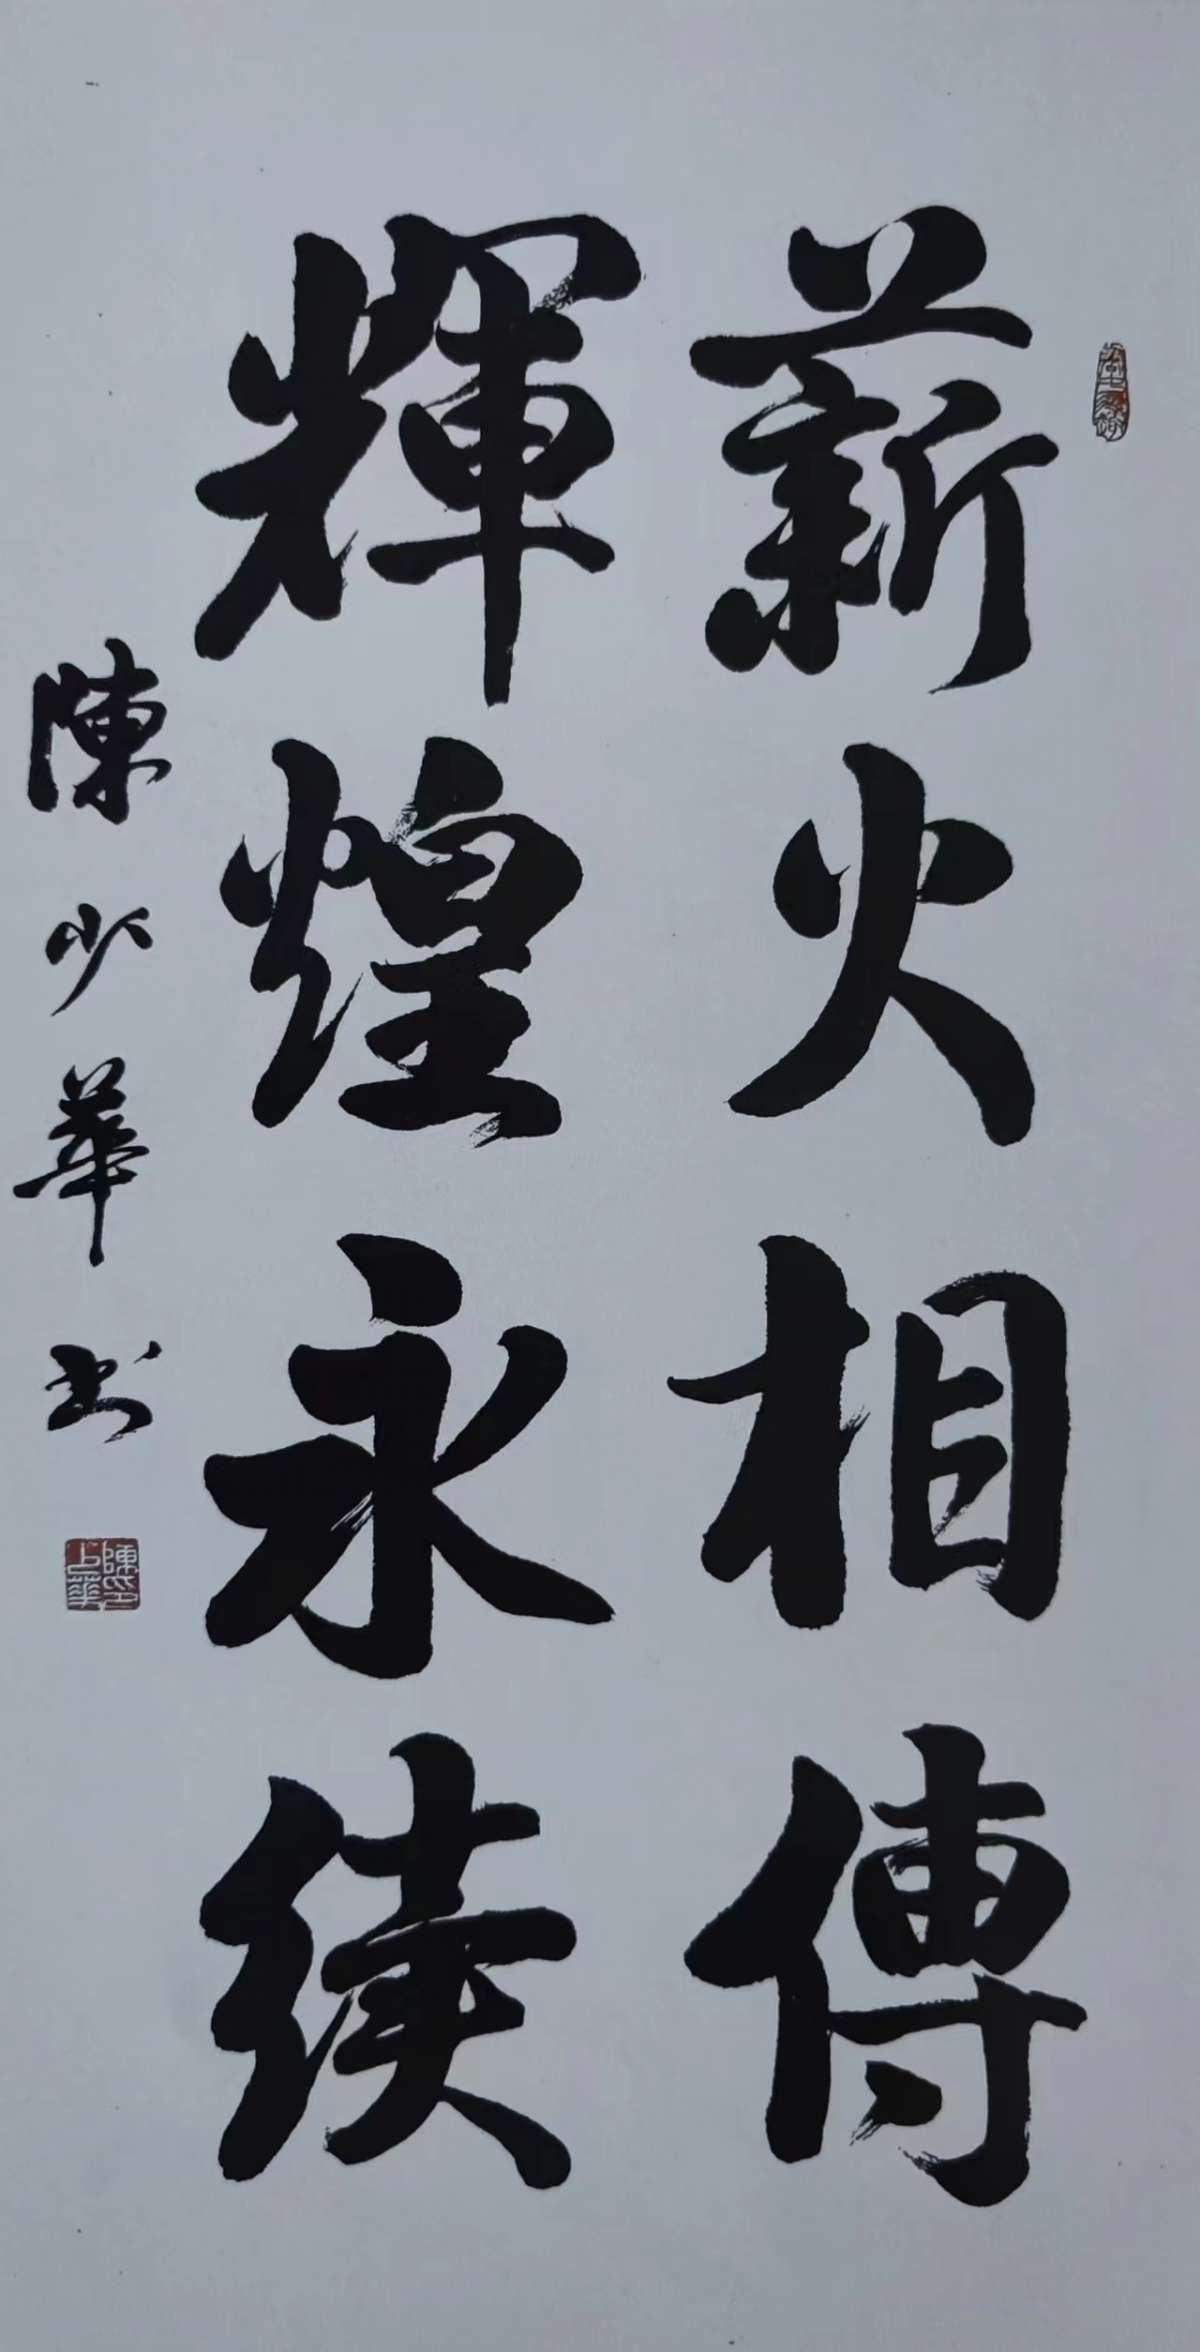 薪火相傳
輝煌永续
陳少華书